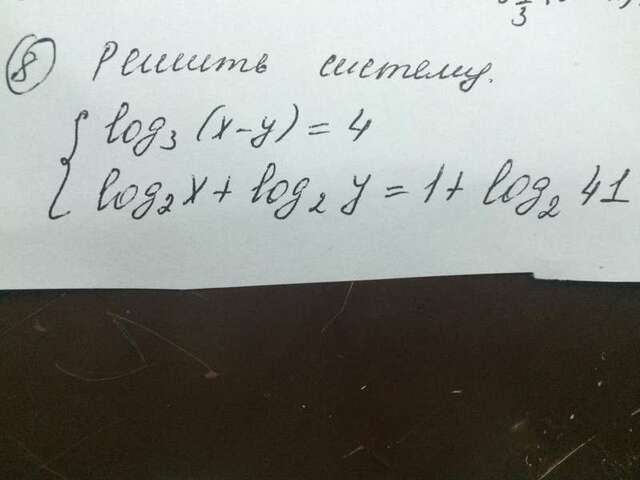 ⑧ Решить систему.
{ log₃(x-y)=4
log₂x+log₂y=1+log₂41